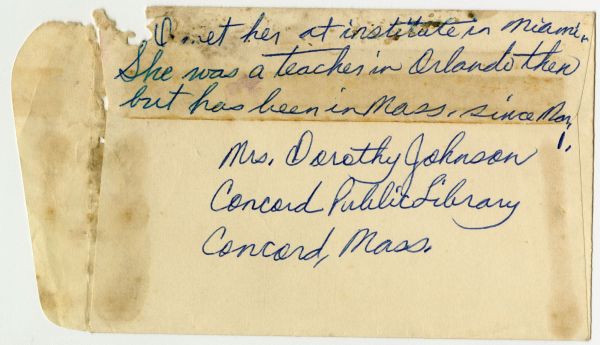 I met her at institute in Miami.
She was a teacher in Orlando then
but has been in Mass. since Mar.
1.
Mrs. Dorothy Johnson
Concord Public Library
Concord, Mass.